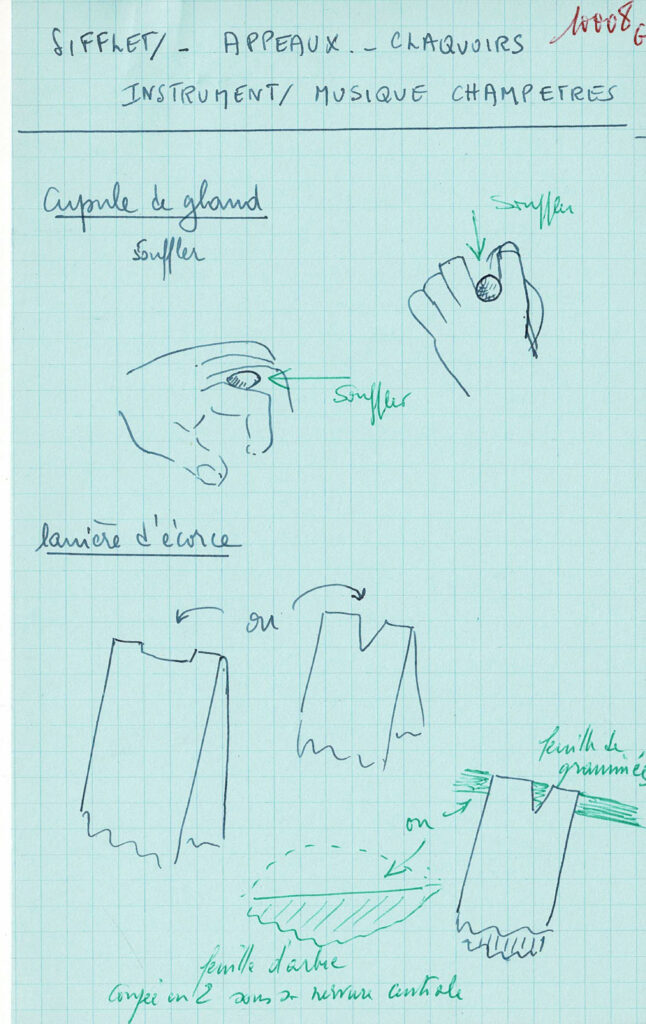 SIFFLETS - APPEAUX. - CLAQUOIRS
10008 G
INSTRUMENTS MUSIQUE CHAMPETRES
Cupule de gland
Souffler
Souffler
Souffler
lanière d'écorce
ou
feuille de
graminée
ou
feuille d'arbre
coupée en 2 sans sa nervure centrale